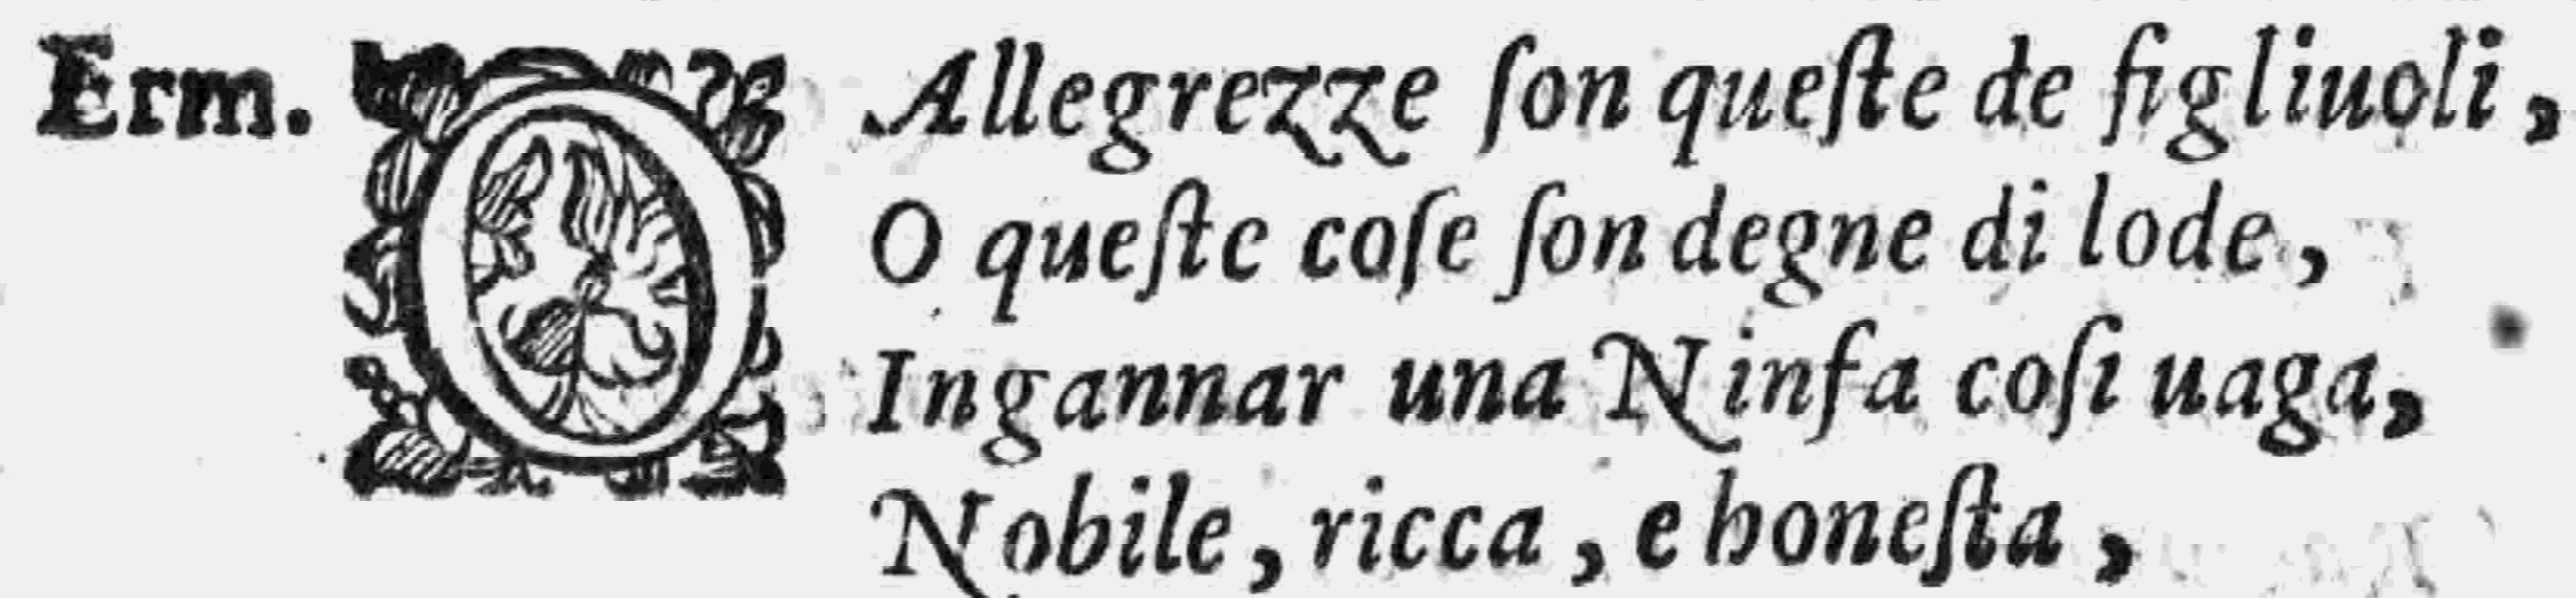 Erm. O Allegrezze ſon queſte de figliuoli,
O queſte coſe ſon degne di lode,
Ingannar una Ninfa coſi uaga,
Nobile, ricca, e honeſta,